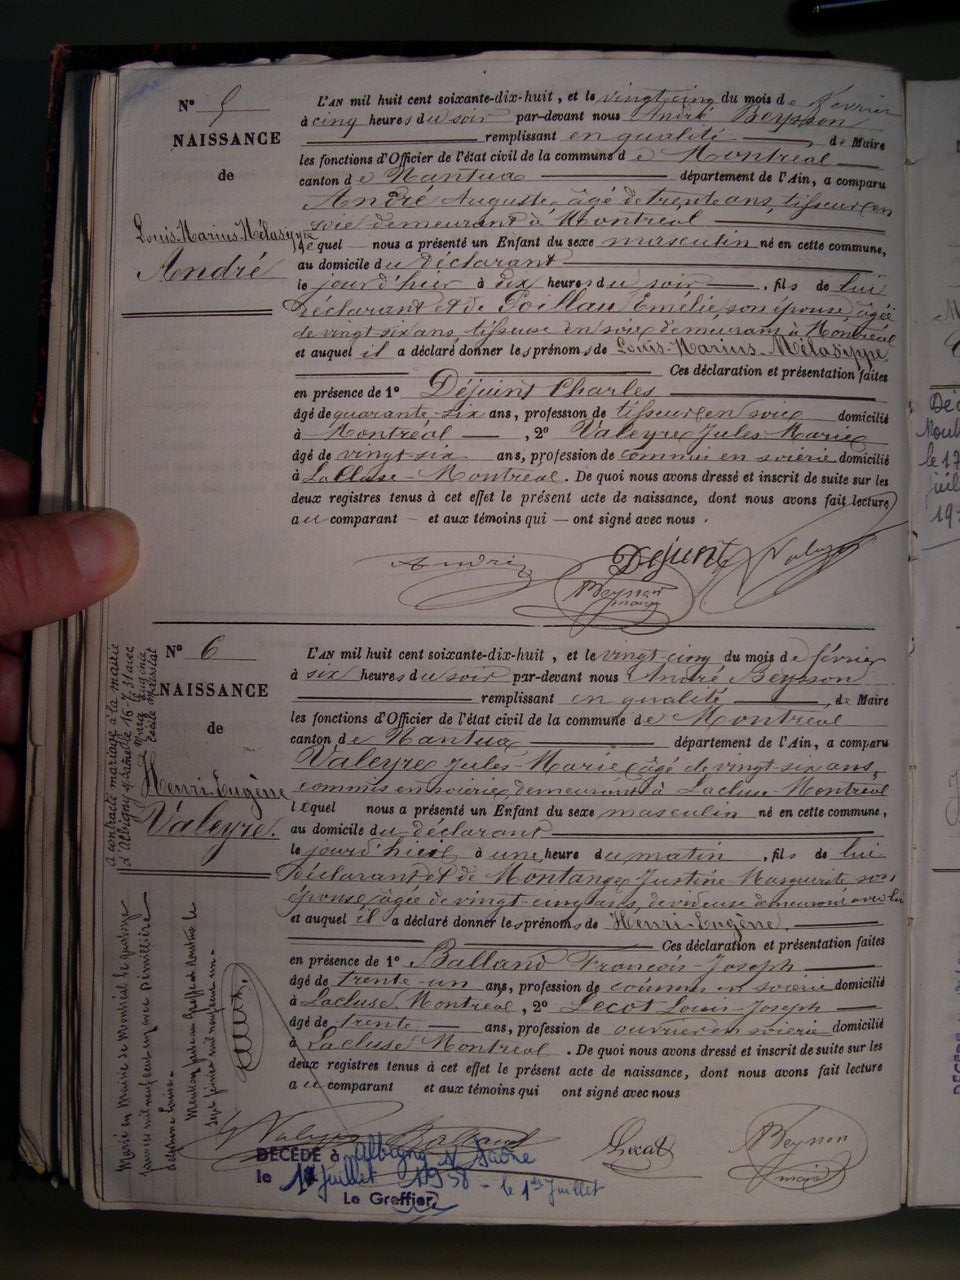 N° 5
NAISSANCE
de
Louis-Marius-Mélasyppe
André
L'AN mil huit cent soixante-dix-huit, et le vingt cinq du mois de février
à cinq heures du soir par-devant nous André Beysson
remplissant en qualité de Maire
les fonctions d'Officier de l'état civil de la commune de Montréal
canton de Nantua département de l'Ain, a comparu
André Auguste, âgé de trente ans, tisseur en
soie demeurant à Montréal
lequel nous a présenté un Enfant du sexe masculin né en cette commune,
au domicile du déclarant
le jour d'hier à dix heures du soir, fils de lui
déclarant et de Poillau Emélie, son épouse, âgée
de vingt six ans, tisseuse en soie demeurant à Montréal
et auquel il a déclaré donner les prénoms de Louis-Marius-Mélasyppe
Ces déclaration et présentation faites
en présence de 1° Déjuint Charles
âgé de quarante-six ans, profession de tisseur en soie domicilié
à Montréal, 2° Valeyre Jules-Marie
âgé de vingt-six ans, profession de commis en soierie domicilié
à La Cluse-Montréal. De quoi nous avons dressé et inscrit de suite sur les
deux registres tenus à cet effet le présent acte de naissance, dont nous avons fait lecture
au comparant et aux témoins qui ont signé avec nous.
André Dejuint Valeyre
Beysson
maire
N° 6
NAISSANCE
de
Henri-Eugène
Valeyre.
L'AN mil huit cent soixante-dix-huit, et le vingt-cinq du mois de février
à six heures du soir par-devant nous André Beysson
remplissant en qualité de Maire
les fonctions d'Officier de l'état civil de la commune de Montréal
canton de Nantua département de l'Ain, a comparu
Valeyre Jules-Marie, âgé de vingt-six ans,
commis en soierie, demeurant à Lacluse-Montréal
lequel nous a présenté un Enfant du sexe masculin né en cette commune,
au domicile du déclarant
le jourd'hui à une heure du matin, fils de lui
déclarant et de Montange Justine Marguerite, son
épouse, âgée de vingt-cinq ans, dévideuse demeurant avec lui
et auquel il a déclaré donner les prénoms de Henri-Eugène.
Ces déclaration et présentation faites
en présence de 1° Balland François-Joseph
âgé de trente-un ans, profession de commis en soierie domicilié
à Lacluse Montréal, 2° Lecot Louis-Joseph
âgé de trente ans, profession de ouvrier en soierie domicilié
à Lacluse Montréal. De quoi nous avons dressé et inscrit de suite sur les
deux registres tenus à cet effet le présent acte de naissance, dont nous avons fait lecture
au comparant et aux témoins qui ont signé avec nous
J Valeyre Balland Lecot Beysson
maire
A contracté mariage à la mairie
d'Albigny s/ Saône le 16-7-31 avec
Marie en Mairie de Montréal le quatorze
janvier mil neuf cent un avec Démillière
Delphine Louise.
Mention faite au Greffe de Nantua le
sept février mil neuf cent un.
DÉCÉDÉ à Albigny s/ Saône
le 1er juillet 1938 - le 1er Juillet
Le Greffier,
Déc
le 17
juil
19